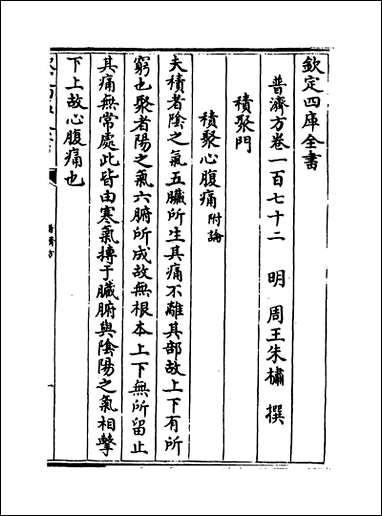 欽定四庫全書
普濟方卷一百七十二 明 周王朱橚 撰
積聚門
積聚心腹痛附論
夫積者陰之氣五臟所生其痛不離其部故上下有所
窮也聚者陽之氣六腑所成故無根本上下無所留止
其痛無常處此皆由寒氣搏于臟腑與陰陽之氣相擊
下上故心腹痛也
普濟方